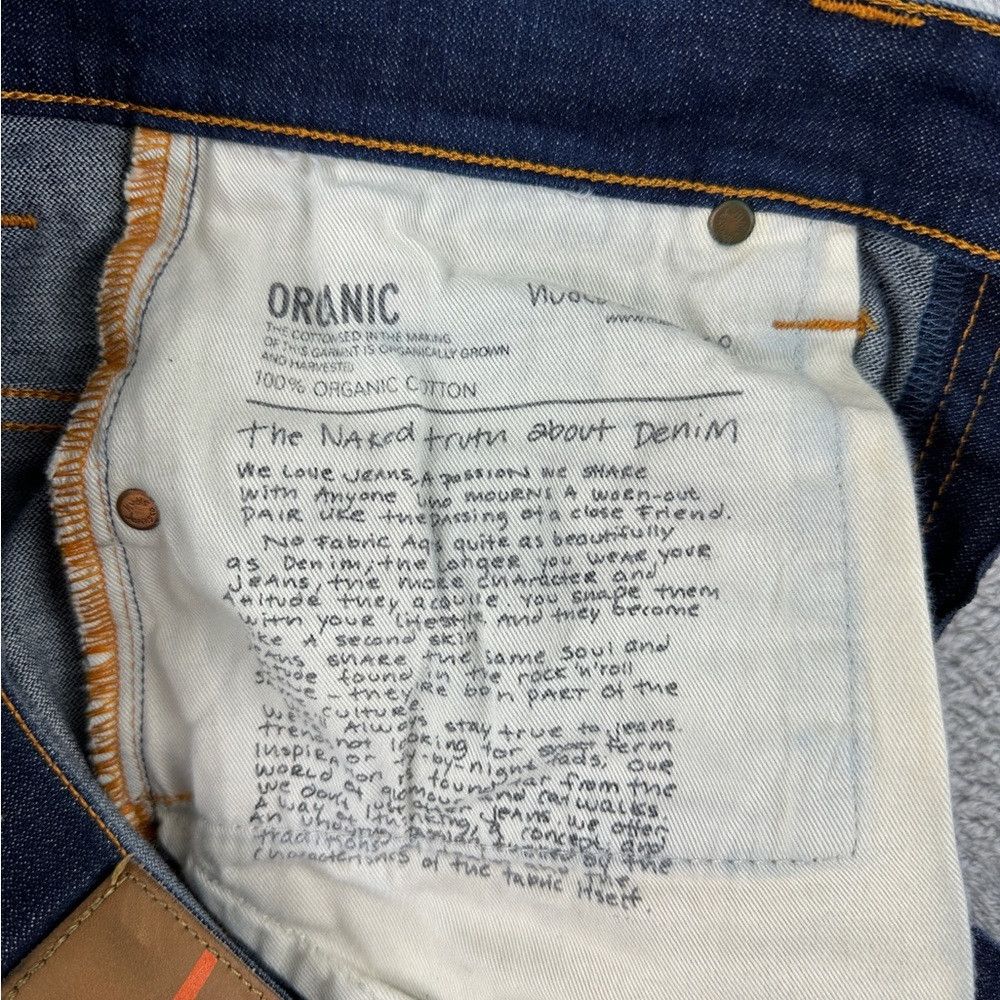 ORGANIC
THE COTTON USED IN THE MAKING
OF THIS GARMENT IS ORGANICALLY GROWN
AND HARVESTED
100% ORGANIC COTTON
The NAKED truth about DENIM
WE LOVE JEANS, A PASSION WE SHARE
with Anyone who MOURNS A worn-out
PAIR LIKE the passing of a close Friend.
No Fabric Ages quite as beautifully
as Denim; the longer you WEAR your
JEANS, the more character and
Attitude they acquire. You shape them
with your Lifestyle AND they become
like A second skin
share the same soul and
found in the rock'n'roll
they are born PART OF the
culture.
Always stay true to jeans.
not looking for term
by-night fads, our
WORLD found far from the
glamour and catwalks
We don't jeans, we offer
A way concept and
AN by the
traditions The
characteristics of the fabric itself.